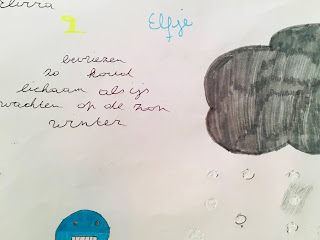 Elvira
2 Elfje
bevriezen
zo koud
lichaam als ijs
wachten op de zon
winter